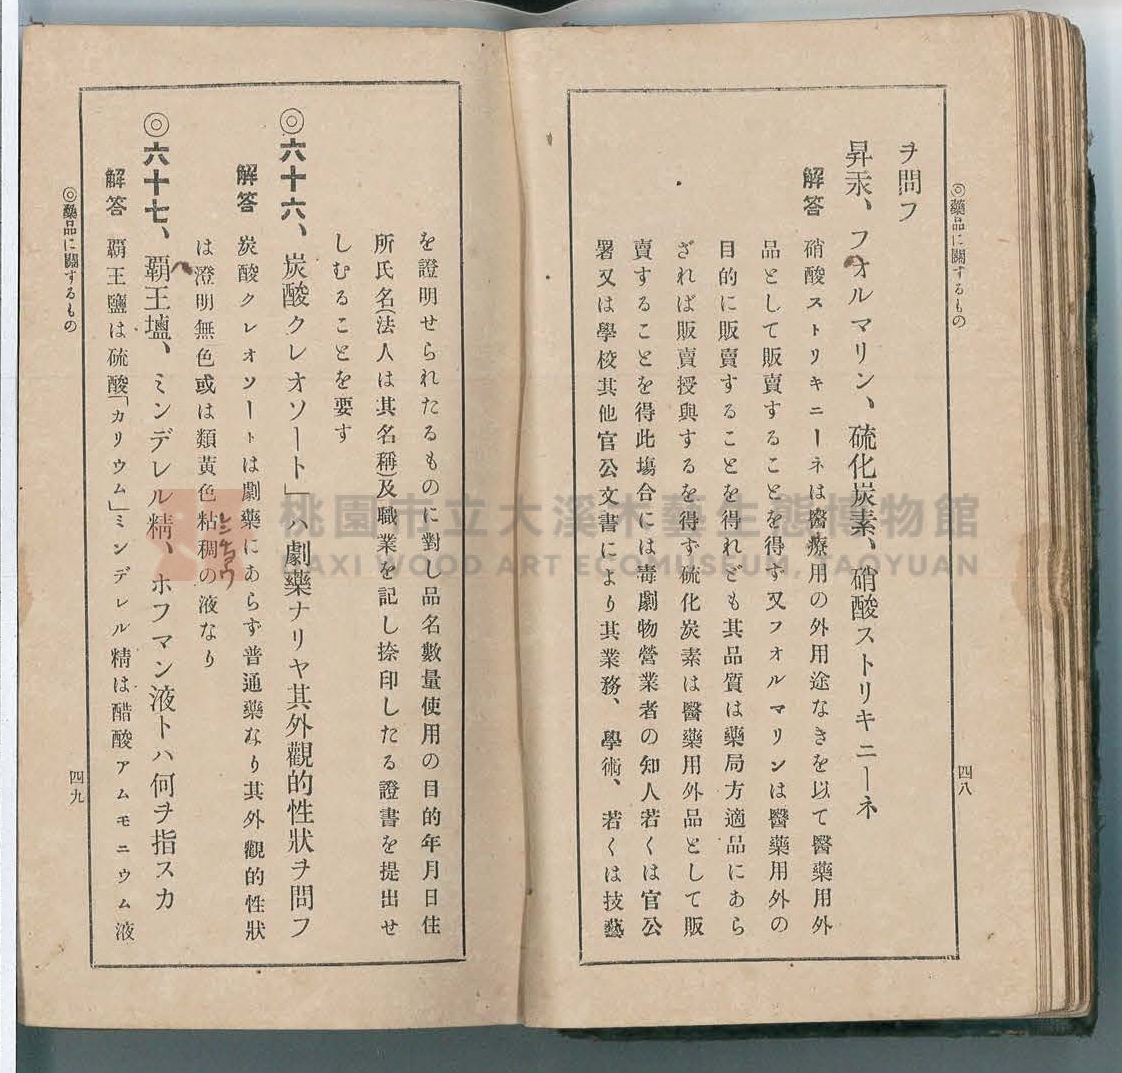 ◎藥品に關するもの
四八
ヲ問フ
昇汞、フオルマリン、硫化炭素、硝酸ストリキニーネ
解答 硝酸ストリキニーネは醫療用の外用途なきを以て醫藥用外
品として販賣することを得ず又フオルマリンは醫藥用外の
目的に販賣することを得れども其品質は藥局方適品にあら
ざれば販賣授與するを得ず硫化炭素は醫藥用外品として販
賣することを得此塲合には毒劇物營業者の知人若くは官公
署又は學校其他官公文書により其業務、學術、若くは技藝
を證明せられたるものに對し品名數量使用の目的年月日住
所氏名(法人は其名稱)及職業を記し捺印したる證書を提出せ
しむることを要す
◎六十六、炭酸クレオソート」ハ劇藥ナリヤ其外觀的性狀ヲ問フ
解答 炭酸クレオソートは劇藥にあらず普通藥なり其外觀的性狀
は澄明無色或は類黃色粘稠の液なり
◎六十七、覇王壚、ミンデレル精、ホフマン液トハ何ヲ指スカ
解答 覇王鹽は硫酸「カリウム」ミンデレル精は醋酸アムモニウム液
◎藥品に關するもの
四九
桃園市立大溪木藝生態博物館
DAXI WOOD ART ECOMUSEUM, TAOYUAN